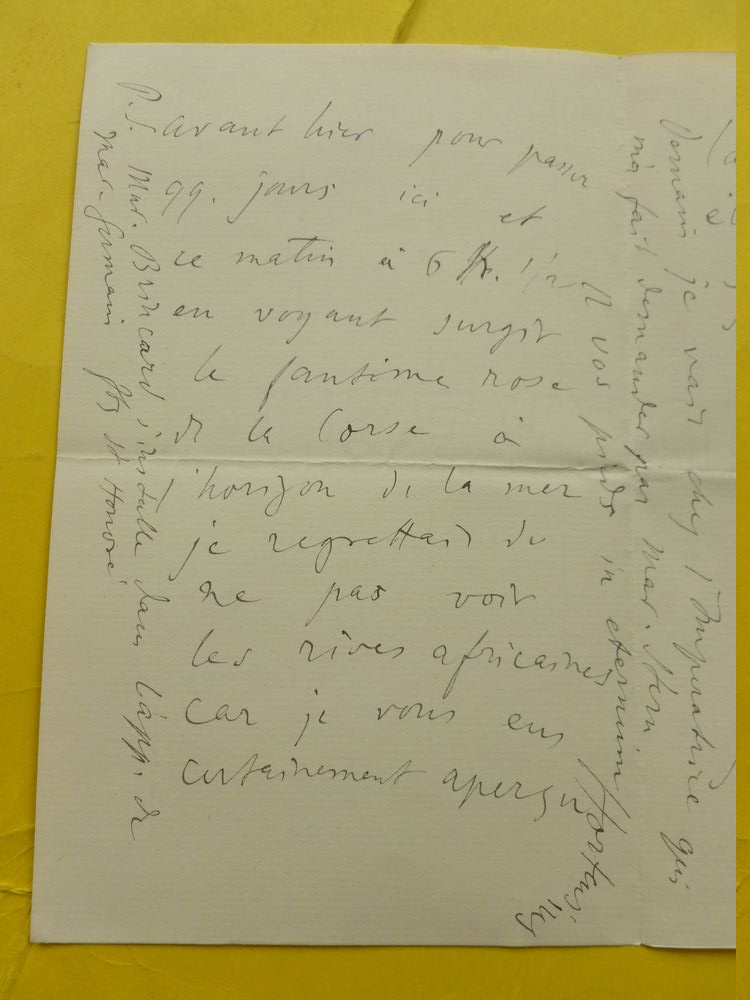 avant hier pour passer
qq. jours ici et
ce matin à 6 h. 1/2
en voyant surgir
le fantôme rose
de la Corse à
l'horizon de la mer
je regrettais de
ne pas voir
les rives africaines
car je vous eus
certainement aperçu
vos pieds in eternum
Hortensias
P.S. Mar. Brincard s'installe dans l'app. de
Mar. Germain fbg St Honoré.
Demain je vais chez l'Impératrice qui
m'a fait demander par Mar. Stern